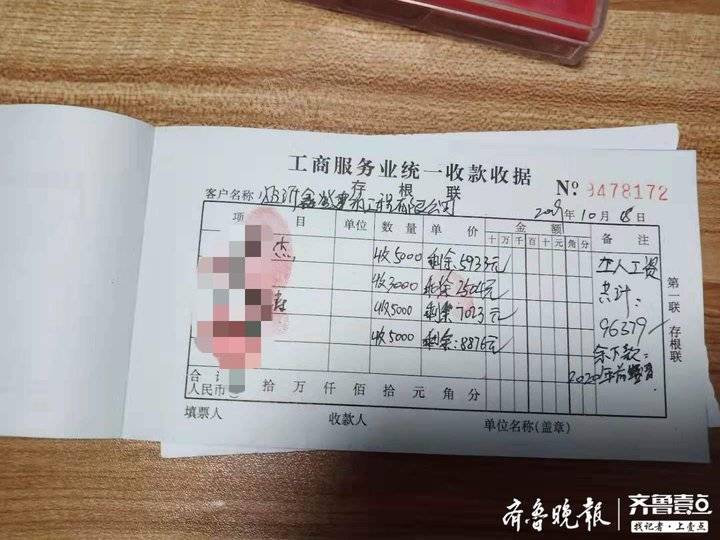 工商服务业统一收款收据
存根联
№ 9478172
客户名称 建筑工程有限公司
年10月 日
项目 单位 数量 单价 金额 备注
十万千百十元角分
杰 收5000 剩余5933元 工人工资
收3000 剩余2504元 共计:
收5000 剩余7023元 96379
收5000 剩余:8876元 余下款:
2020年前
合计
人民币 拾万仟佰拾元角分
填票人 收款人 单位名称(盖章)
第一联 存根联
齐鲁晚报
齐鲁壹点
找记者·上壹点